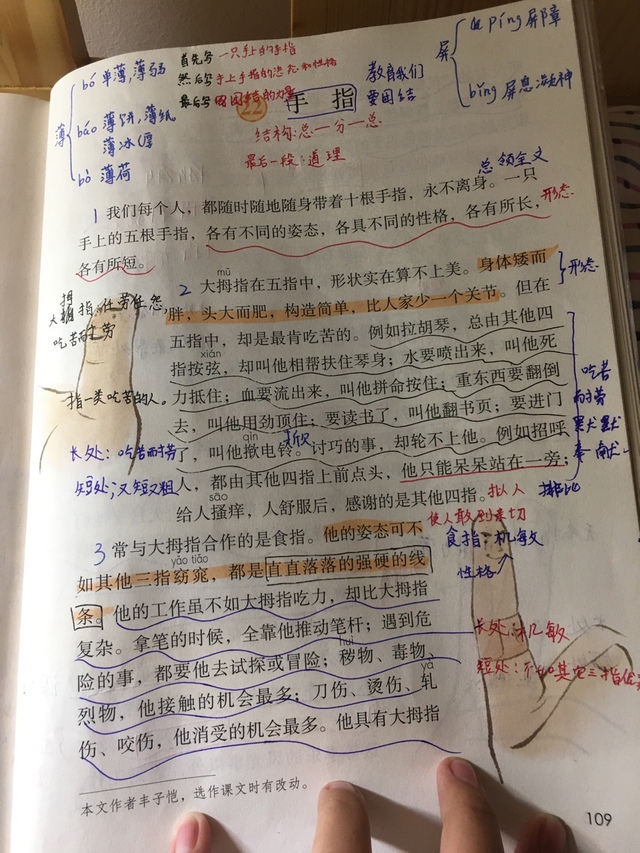 bó 单薄,薄弱
薄
báo 薄饼,薄纸
薄冰(厚
bò 薄荷
首先写 一只手上的手指
然后写 手上手指的姿态和性格
最后写 团结的力量
22 手指
教育我们
要团结
结构:总—分—总
最后一段:道理
屏
píng 屏障
bǐng 屏息凝神
总领全文
1 我们每个人，都随时随地随身带着十根手指，永不离身。一只
手上的五根手指，各有不同的姿态，各具不同的性格，各有所长，
各有所短。
形态
mǔ
2 大拇指在五指中，形状实在算不上美。身体矮而
胖，头大而肥，构造简单，比人家少一个关节。但在
五指中，却是最肯吃苦的。例如拉胡琴，总由其他四
xián
指按弦，却叫他相帮扶住琴身；水要喷出来，叫他死
力抵住；血要流出来，叫他拼命按住；重东西要翻倒
去，叫他用劲顶住；要读书了，叫他翻书页；要进门
qìn
了，叫他揿电铃。讨巧的事，却轮不上他。例如招呼
人，都由其他四指上前点头，他只能呆呆站在一旁；
sāo
给人搔痒，人舒服后，感谢的是其他四指。
形态
大拇指任劳任怨,
吃苦耐劳
指一类吃苦的人。
长处:吃苦耐劳
短处:又短又粗
吃苦
耐劳
默默
奉献
拟人
排比
使人敢到亲切
3 常与大拇指合作的是食指。他的姿态可不
yǎo tiǎo
如其他三指窈窕，都是直直落落的强硬的线
条。他的工作虽不如大拇指吃力，却比大拇指
复杂。拿笔的时候，全靠他推动笔杆；遇到危
huì
险的事，都要他去试探或冒险；秽物、毒物、
yà
烈物，他接触的机会最多；刀伤、烫伤、轧
伤、咬伤，他消受的机会最多。他具有大拇指
食指:机敏
性格
长处:机敏
短处:不如其它三指
本文作者丰子恺，选作课文时有改动。
109